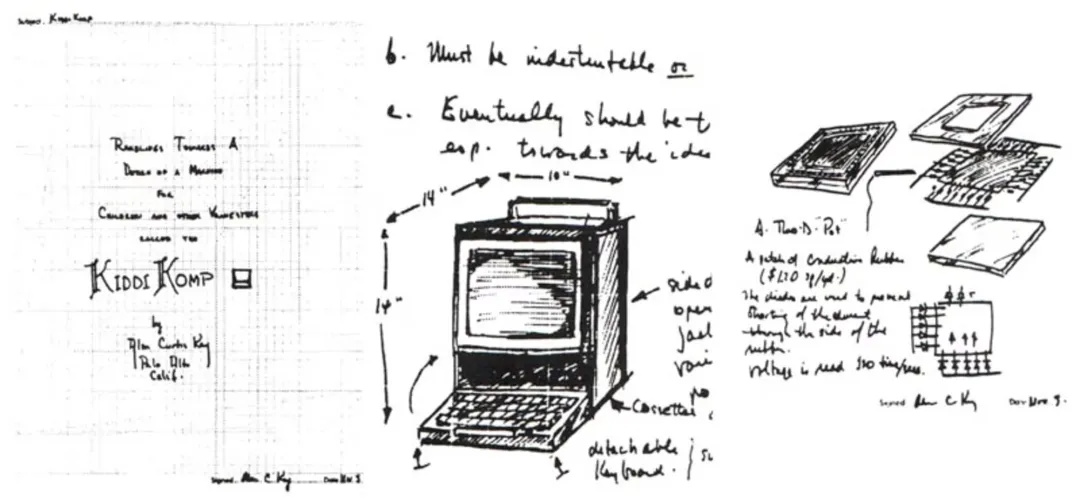 Subject: Kiddi Komp
Ramblings Towards A
Design of a Machine
For
Children and other Youngsters
called the
KIDDI KOMP
by
Alan Curtis Kay
Palo Alto
Calif.
Signed Alan C Kay Date Nov 3.
b. Must be indestructable or
c. Eventually should be t
esp. towards the idea
14"
10"
14"
side o
open
jack
voi
po
Cassettes
detachable
Keyboard.
A. Two-D-"Pot"
A patch of conductive Rubber
The diodes are used to prevent
shorting of the current
through the side of the
rubber.
Voltage is read
Signed Alan C Kay Date Nov 3.